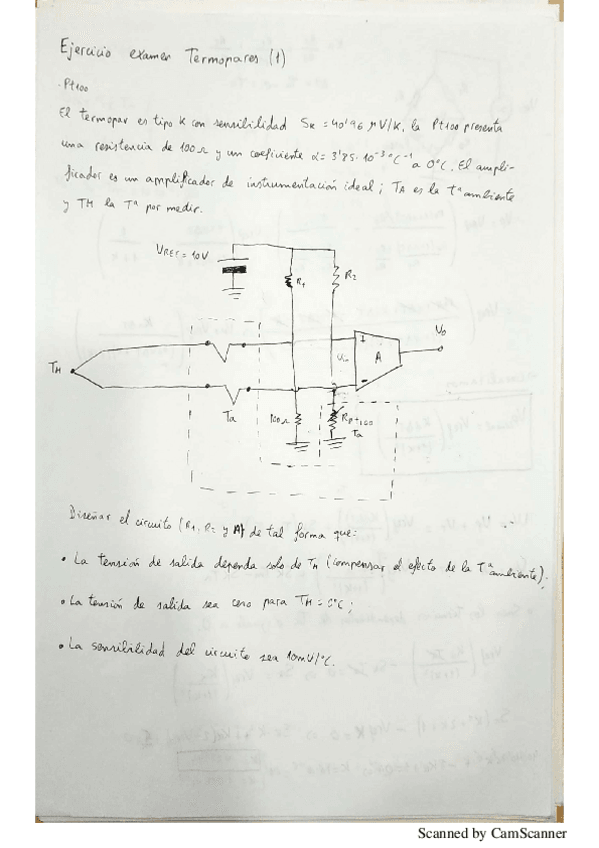 Ejercicio examen Termopares (1)
·Pt100
El termopar es tipo K con sensibilidad Sk = 40'96 µV/K, la Pt100 presenta
una resistencia de 100Ω y un coeficiente α = 3'85·10⁻³ °C⁻¹ a 0°C. El ampli-
ficador es un amplificador de instrumentación ideal; TA es la Tª ambiente
y TH la Tª por medir.
VREF = 10V
R1
R2
TH
Vin
+
-
A
Vo
Ta
100Ω
RPt100
Ta
Diseñar el circuito (R1, R2 y A) de tal forma que:
• La tensión de salida dependa solo de TH (compensar el efecto de la Tª ambiente).
• La tensión de salida sea cero para TH = 0°C;
• La sensibilidad del circuito sea 10mV/°C.
Scanned by CamScanner